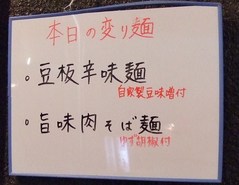 本日の変り麺
。豆板辛味麺
自家製豆味噌付
。旨味肉そば麺
ゆず胡椒付